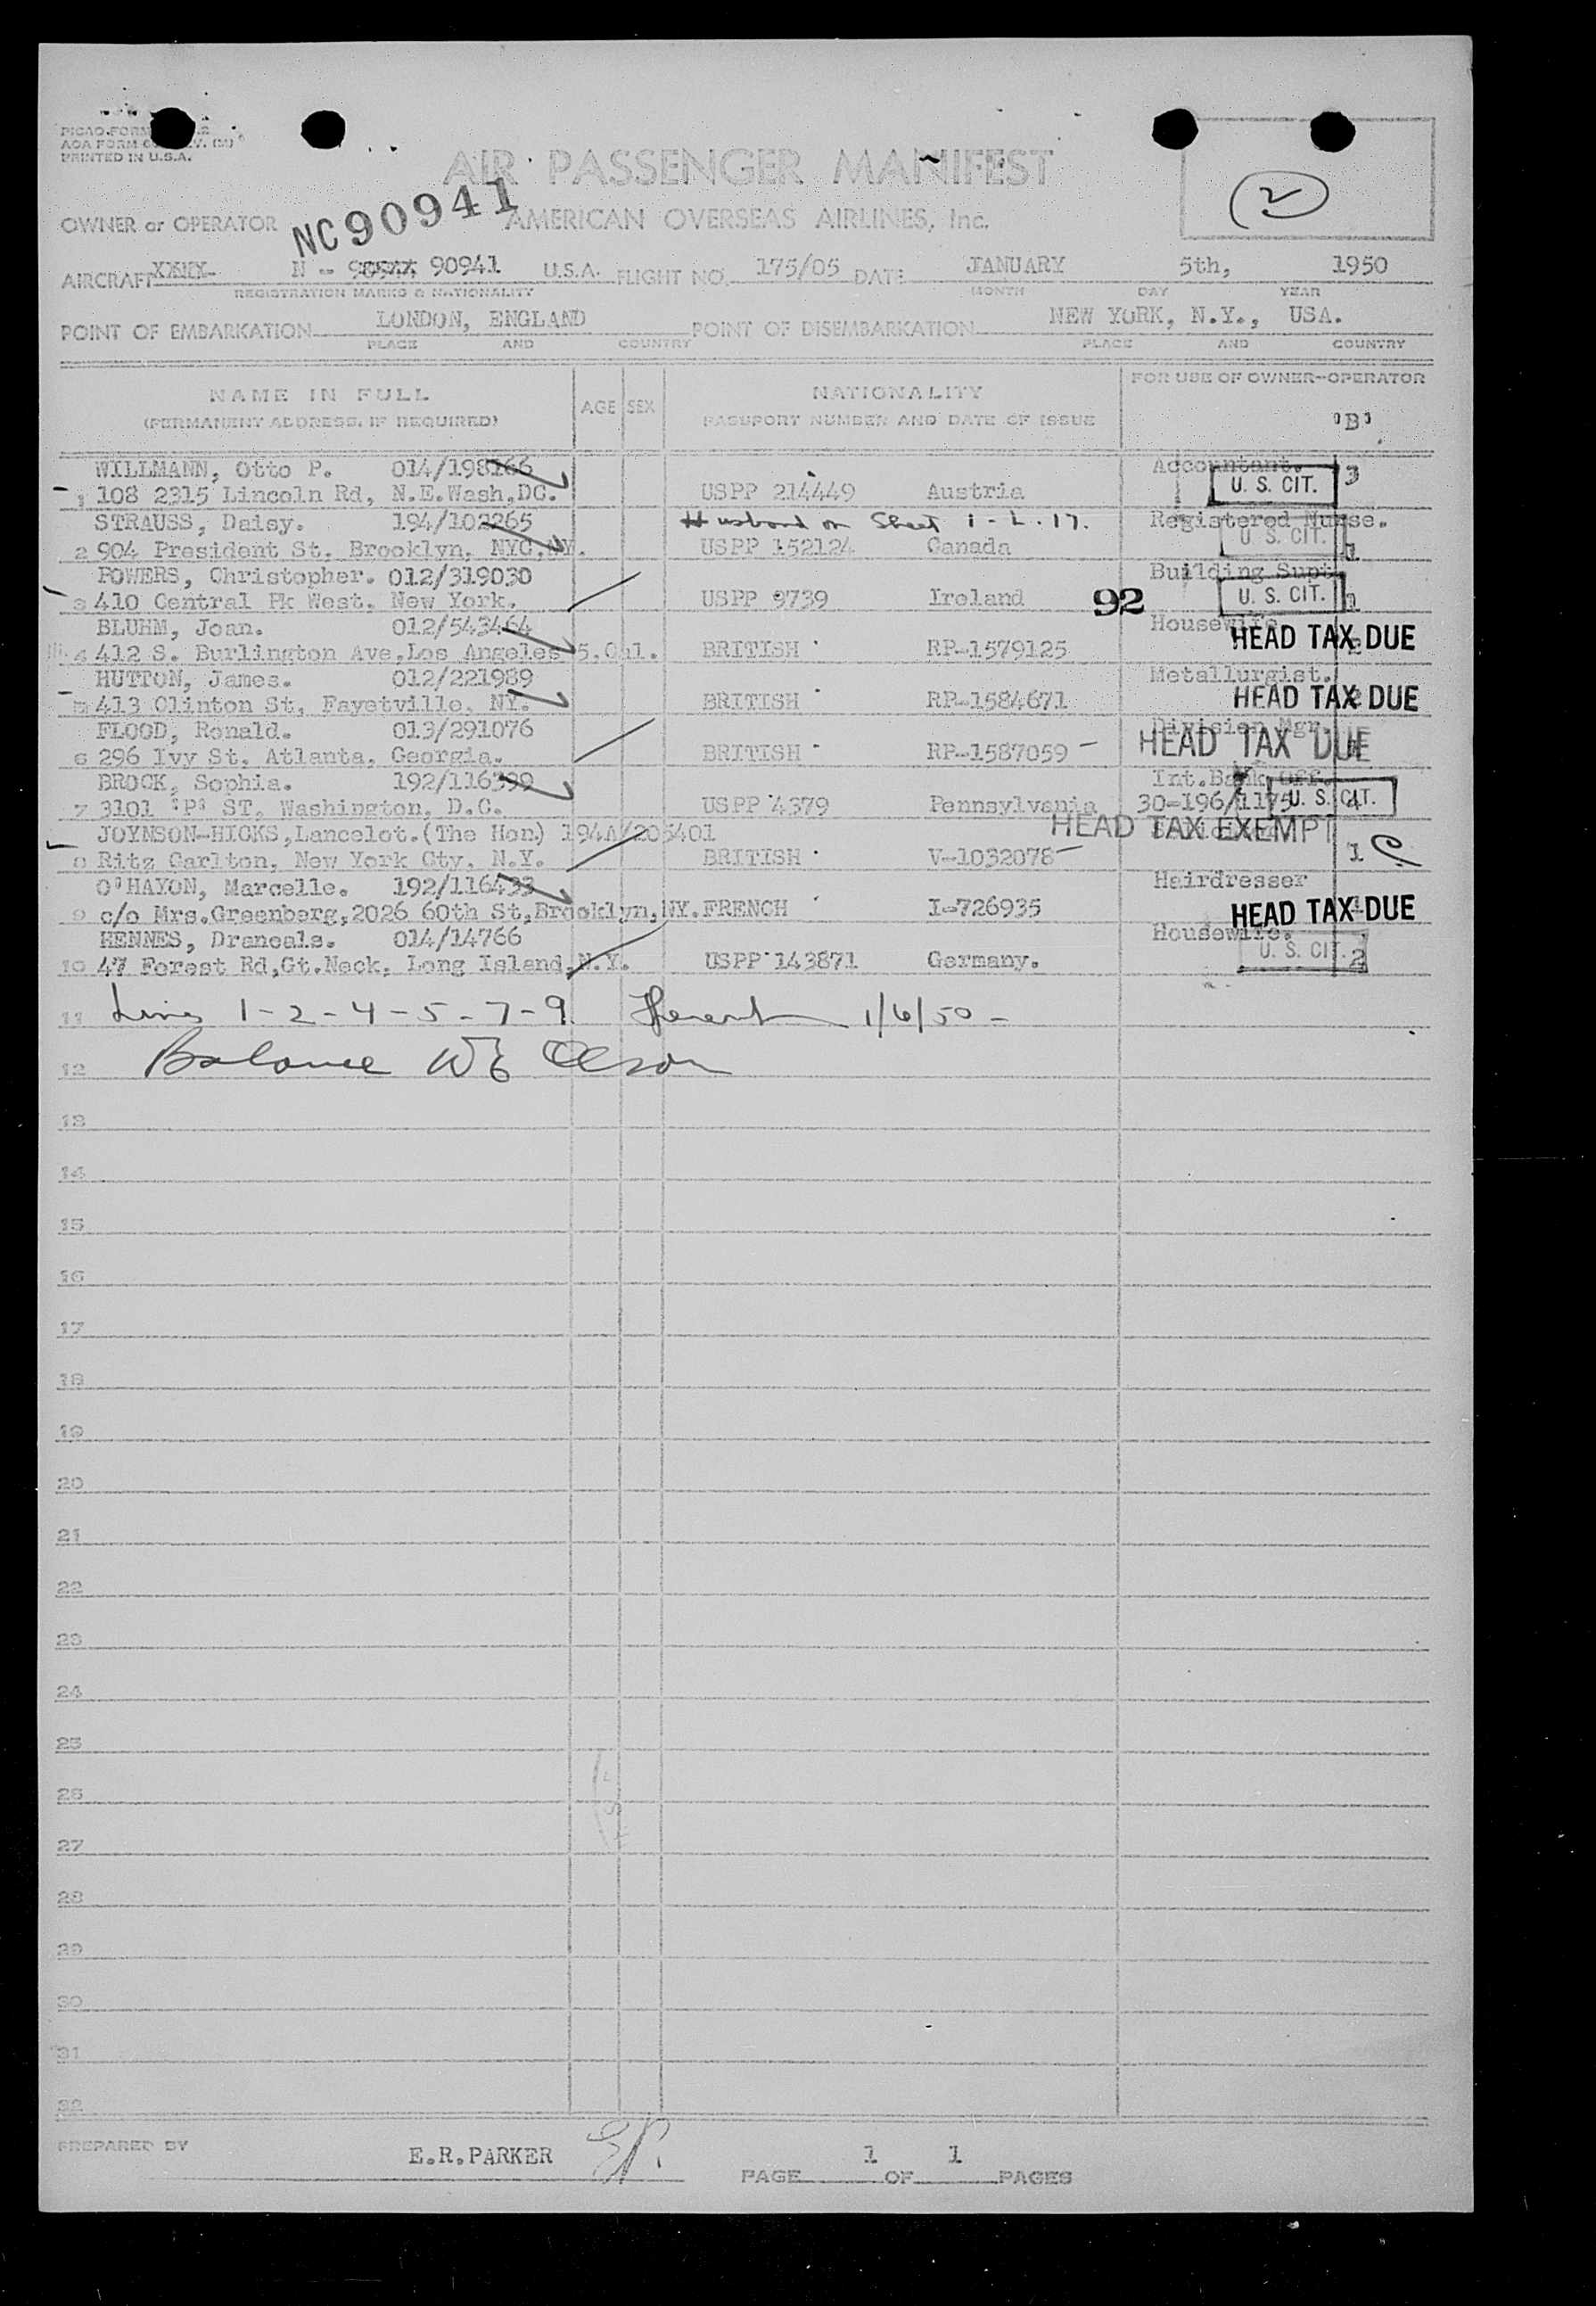 PICAO FORM
AOA FORM
PRINTED IN U.S.A.
AIR PASSENGER MANIFEST
2
OWNER or OPERATOR NC90941 AMERICAN OVERSEAS AIRLINES, Inc.
AIRCRAFT N - 90941 U.S.A. FLIGHT NO. 175/05 DATE JANUARY 5th, 1950
REGISTRATION MARKS & NATIONALITY MONTH DAY YEAR
POINT OF EMBARKATION LONDON, ENGLAND POINT OF DISEMBARKATION NEW YORK, N.Y., USA.
PLACE AND COUNTRY PLACE AND COUNTRY
NAME IN FULL AGE SEX NATIONALITY FOR USE OF OWNER-OPERATOR
(PERMANENT ADDRESS, IF REQUIRED) PASSPORT NUMBER AND DATE OF ISSUE 'B'
WILLMANN, Otto P. 014/198166 Accountant. 3
1 108 2315 Lincoln Rd, N.E.Wash,DC. USPP 214449 Austria U. S. CIT.
STRAUSS, Daisy. 194/102265 Husband on Sheet 1 - L. 17. Registered Nurse.
2 904 President St. Brooklyn, NYC,NY. USPP 152124 Canada U. S. CIT. 1
POWERS, Christopher. 012/319030 Building Supt
3 410 Central Pk West, New York. USPP 9739 Ireland 92 U. S. CIT. 1
BLUHM, Joan. 012/543464 Housewife HEAD TAX DUE
4 412 S. Burlington Ave,Los Angeles 5,Cal. BRITISH RP-1579125
HUTTON, James. 012/221989 Metallurgist.
5 413 Clinton St, Fayetville, NY. BRITISH RP-1584671 HEAD TAX DUE
FLOOD, Ronald. 013/291076 Division Mgr.
6 296 Ivy St. Atlanta, Georgia. BRITISH RP-1587059 - HEAD TAX DUE
BROCK, Sophia. 192/116399 Int.Bank Off.
7 3101 'P' ST, Washington, D.C. USPP 4379 Pennsylvania 30-196/1175 U. S. CIT. 4
JOYNSON-HICKS,Lancelot.(The Hon) 194A/205401 HEAD TAX EXEMPT
8 Ritz Carlton, New York Cty, N.Y. BRITISH V-1032078 - 1
O'HAYON, Marcelle. 192/116433 Hairdresser
9 c/o Mrs.Greenberg,2026 60th St,Brooklyn,NY. FRENCH I-726935 HEAD TAX DUE
HENNES, Draneals. 014/14766 Housewife.
10 47 Forest Rd,Gt.Neck, Long Island,N.Y. USPP 143871 Germany. U. S. CIT. 2
11 Lines 1-2-4-5-7-9 1/6/50 -
12 Balance WE Olson
13
14
15
16
17
18
19
20
21
22
23
24
25
26
27
28
29
30
31
32
PREPARED BY E.R.PARKER PAGE 1 OF 1 PAGES